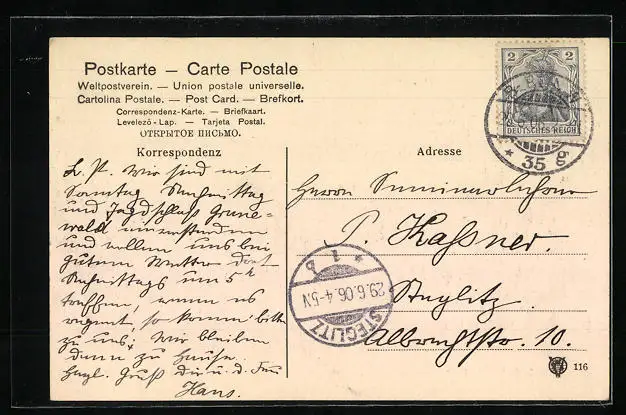 Postkarte — Carte Postale
Weltpostverein. — Union postale universelle.
Cartolina Postale. — Post Card. — Brefkort.
Correspondenz-Karte. — Briefkaart.
Levelező-Lap. — Tarjeta Postal.
ОТКРЫТОЕ ПИСЬМО.
Korrespondenz
L. P. Wir sind mit
Sonntag Nachmittag
und Jagdschloss Grune-
wald einverstanden
und wollen uns bei
gutem Wetter dort
Nachmittags um 5 h
treffen, wenn es
regnet, so kommt bitte
zu uns; wir bleiben
dann zu Hause.
Herzl. Gruß dir u. d. Frau
Hans.
Adresse
Herrn Seminarlehrer
P. Kaßner.
Steglitz.
Albrechtstr. 10.
2 2
DEUTSCHES REICH
* 35 g
* 1 b
29.6.06. 4-5N
STEGLITZ
116